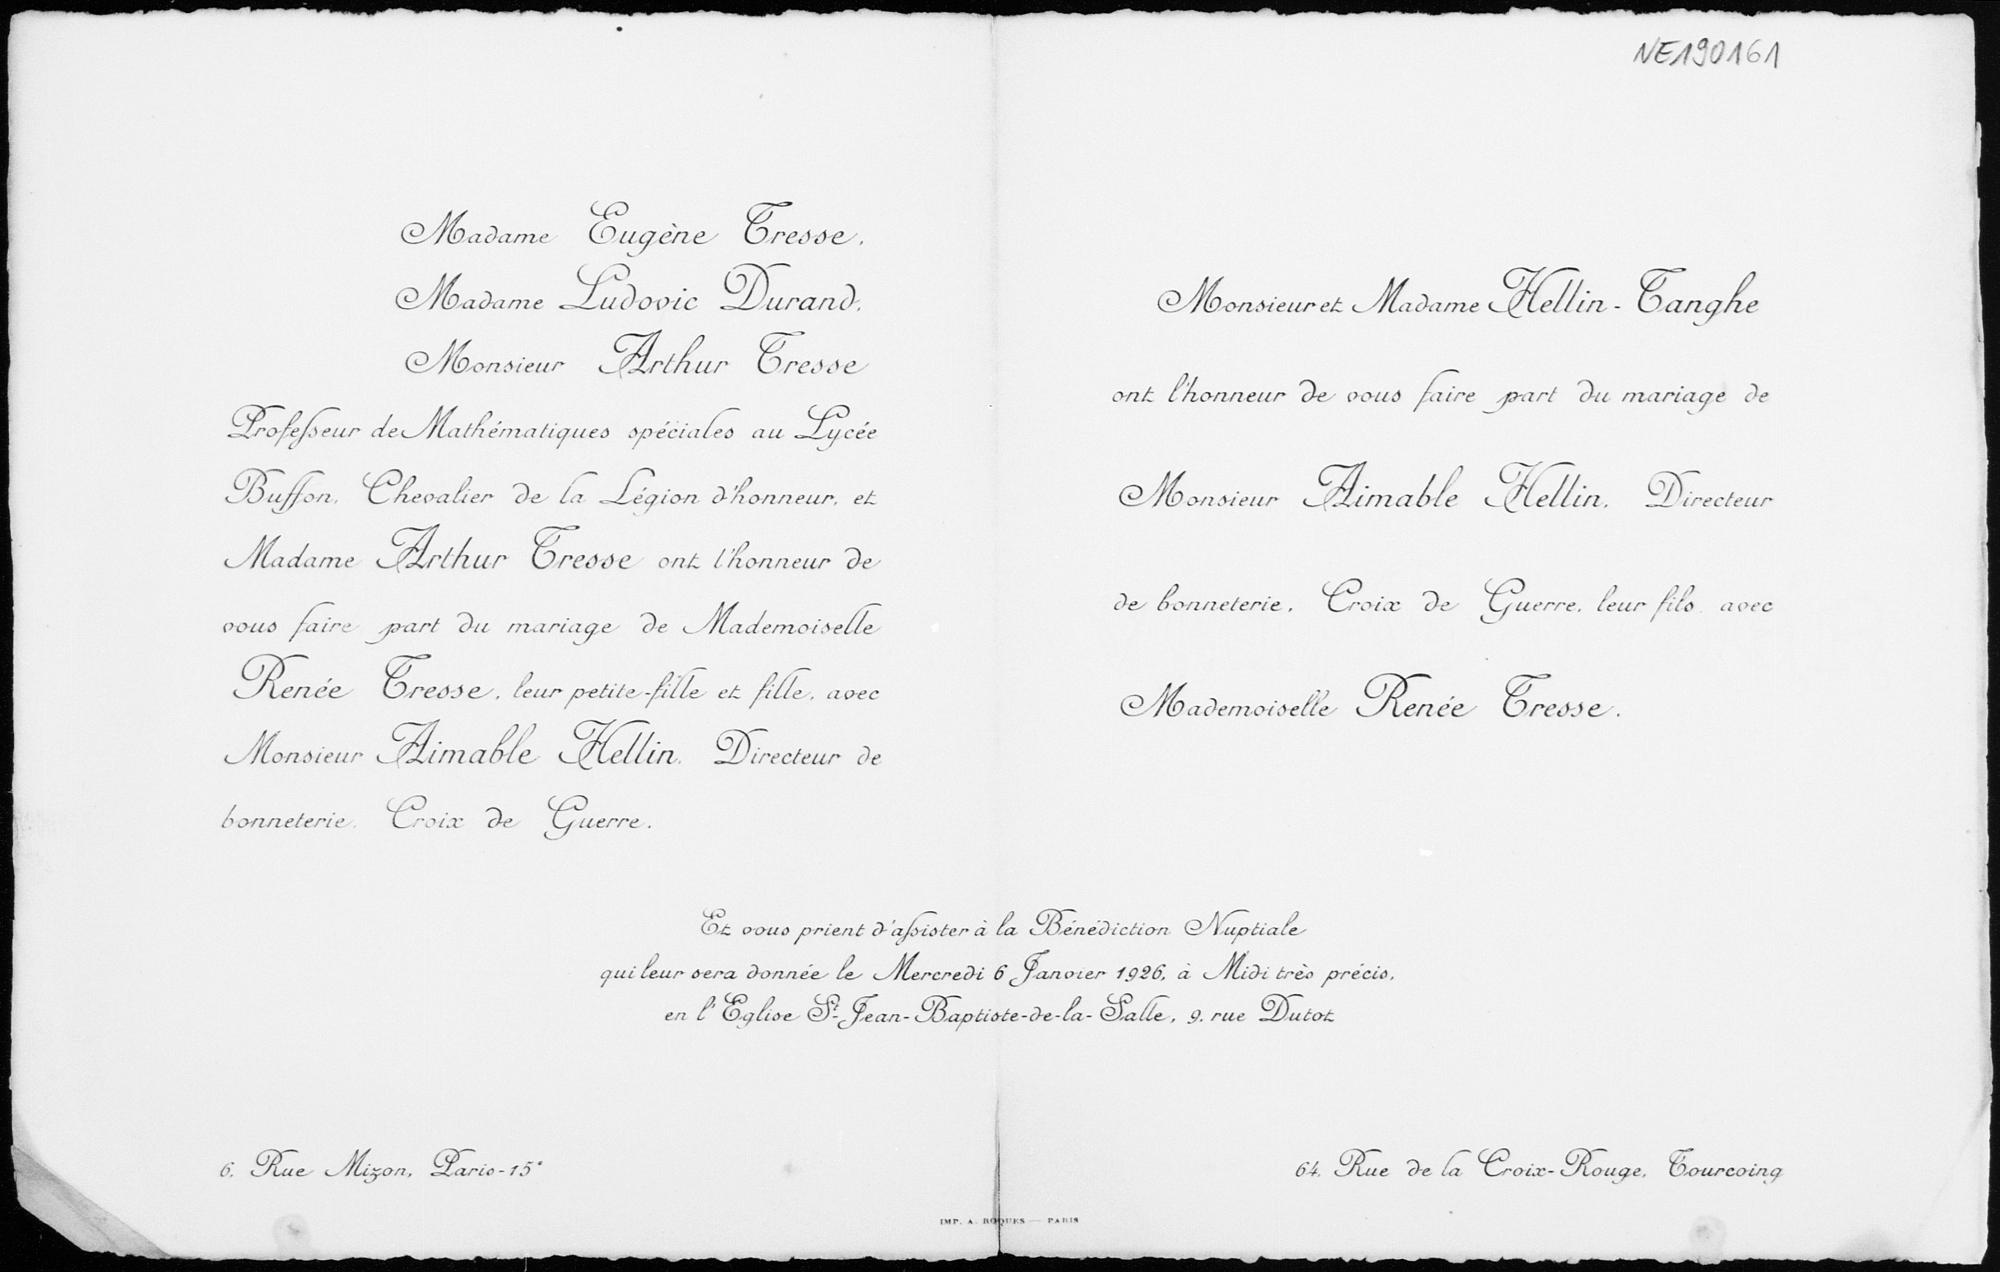 NE190161
Madame Eugène Tresse,
Madame Ludovic Durand,
Monsieur Arthur Tresse
Professeur de Mathématiques spéciales au Lycée
Buffon, Chevalier de la Légion d'honneur, et
Madame Arthur Tresse ont l'honneur de
vous faire part du mariage de Mademoiselle
Renée Tresse, leur petite-fille et fille, avec
Monsieur Aimable Hellin, Directeur de
bonneterie, Croix de Guerre.
Monsieur et Madame Hellin-Tanghe
ont l'honneur de vous faire part du mariage de
Monsieur Aimable Hellin, Directeur
de bonneterie, Croix de Guerre, leur fils, avec
Mademoiselle Renée Tresse.
Et vous prient d'assister à la Bénédiction Nuptiale
qui leur sera donnée le Mercredi 6 Janvier 1926, à Midi très précis,
en l'Eglise St-Jean-Baptiste-de-la-Salle, 9, rue Dutot
6, Rue Mizon, Paris-15e
64, Rue de la Croix-Rouge, Tourcoing
IMP. A. ROQUES — PARIS